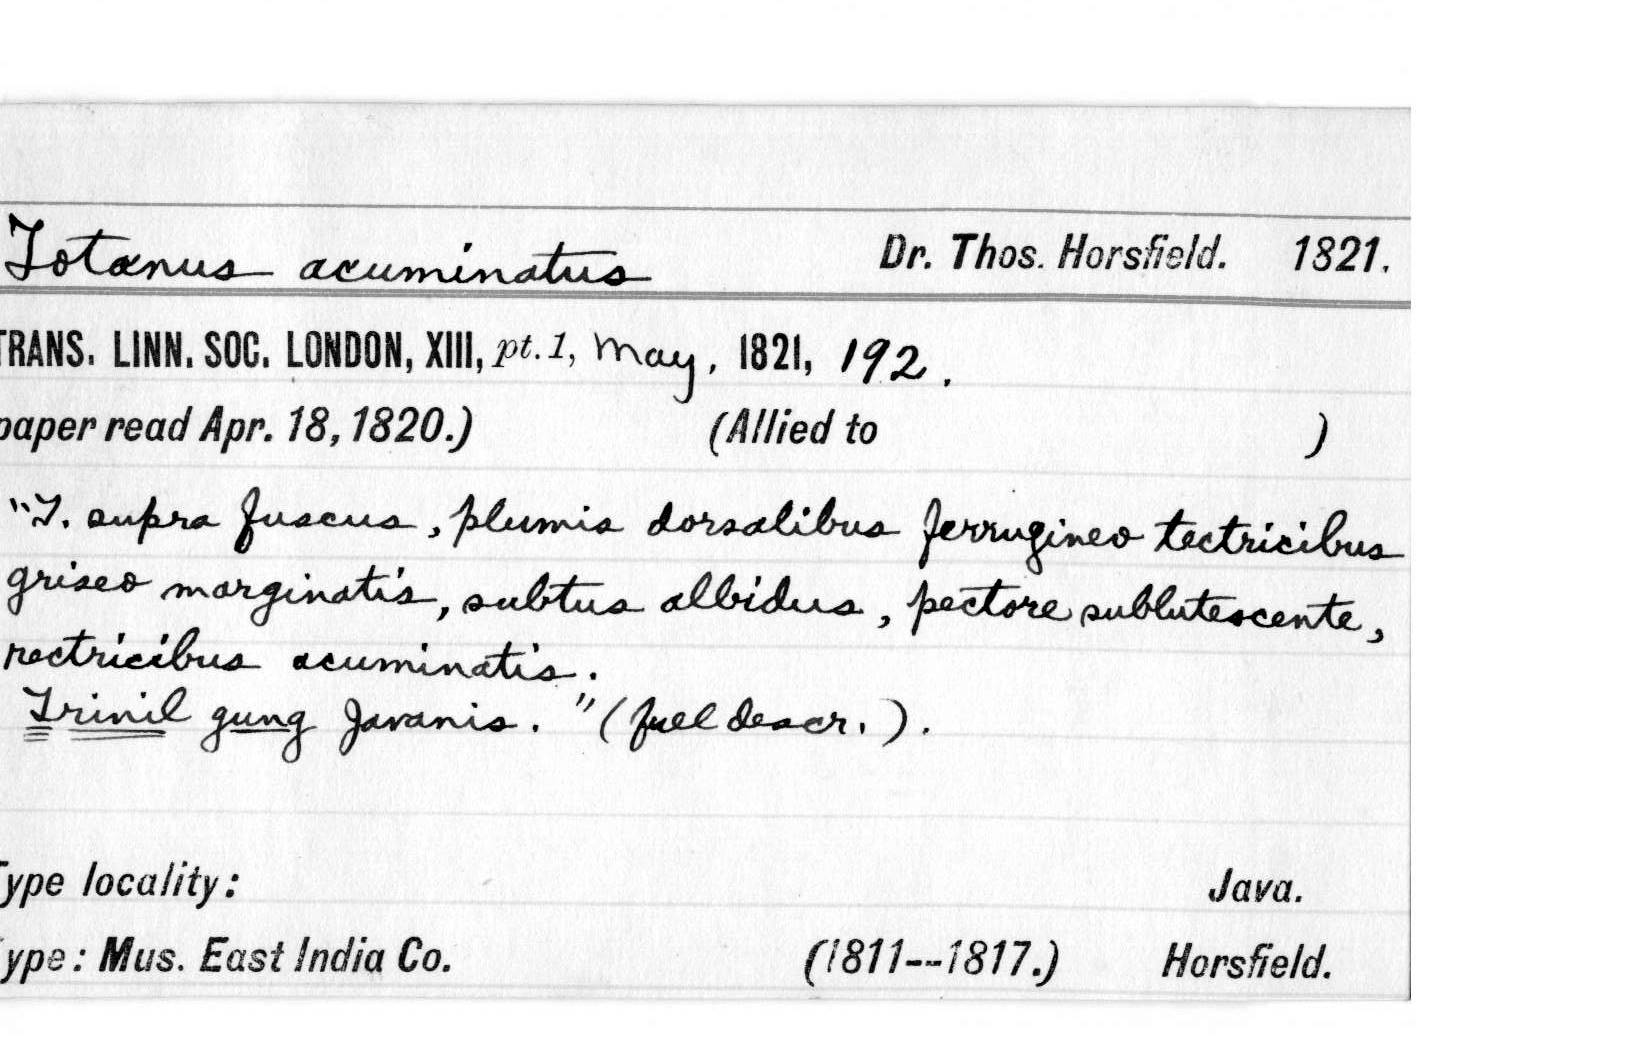 Totanus acuminatus Dr. Thos. Horsfield. 1821.
TRANS. LINN. SOC. LONDON, XIII, pt. 1, May, 1821, 192.
paper read Apr. 18, 1820.) (Allied to )
"T. supra fuscus, plumis dorsalibus ferrugineo tectricibus
griseo marginatis, subtus albidus, pectore sublutescente,
rectricibus acuminatis.
Trinil gung Javanis." (full descr.).
Type locality: Java.
Type: Mus. East India Co. (1811--1817.) Horsfield.